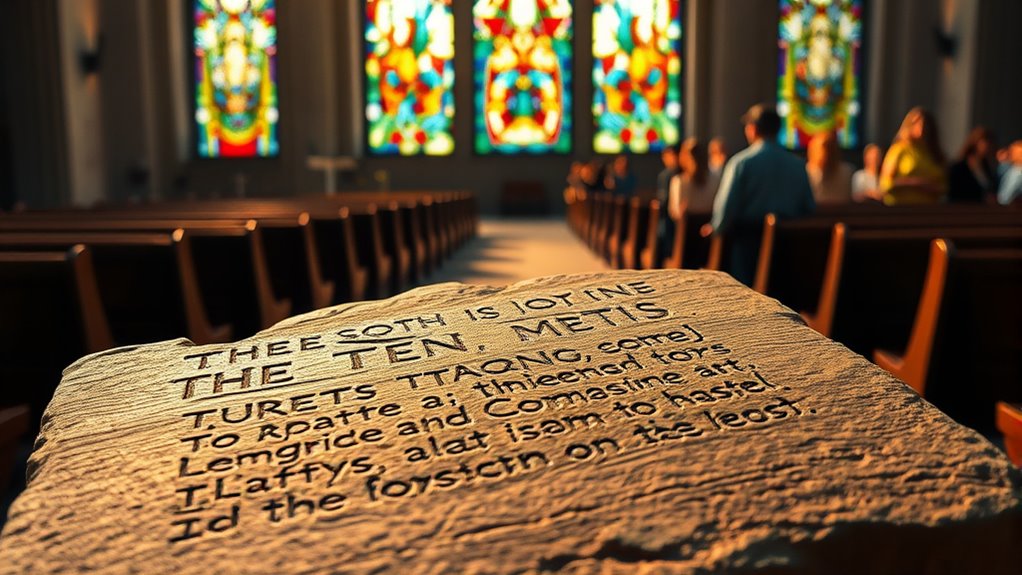 THEESOTH IS IOTINE
THE TEN, METIS
T.URETS TTAQNG, comej
To Apatte a; thnieend fors
Lemgride and Comasime art;
T.Laftys, alat isam to hastel.
Id the forstctn on the leost.